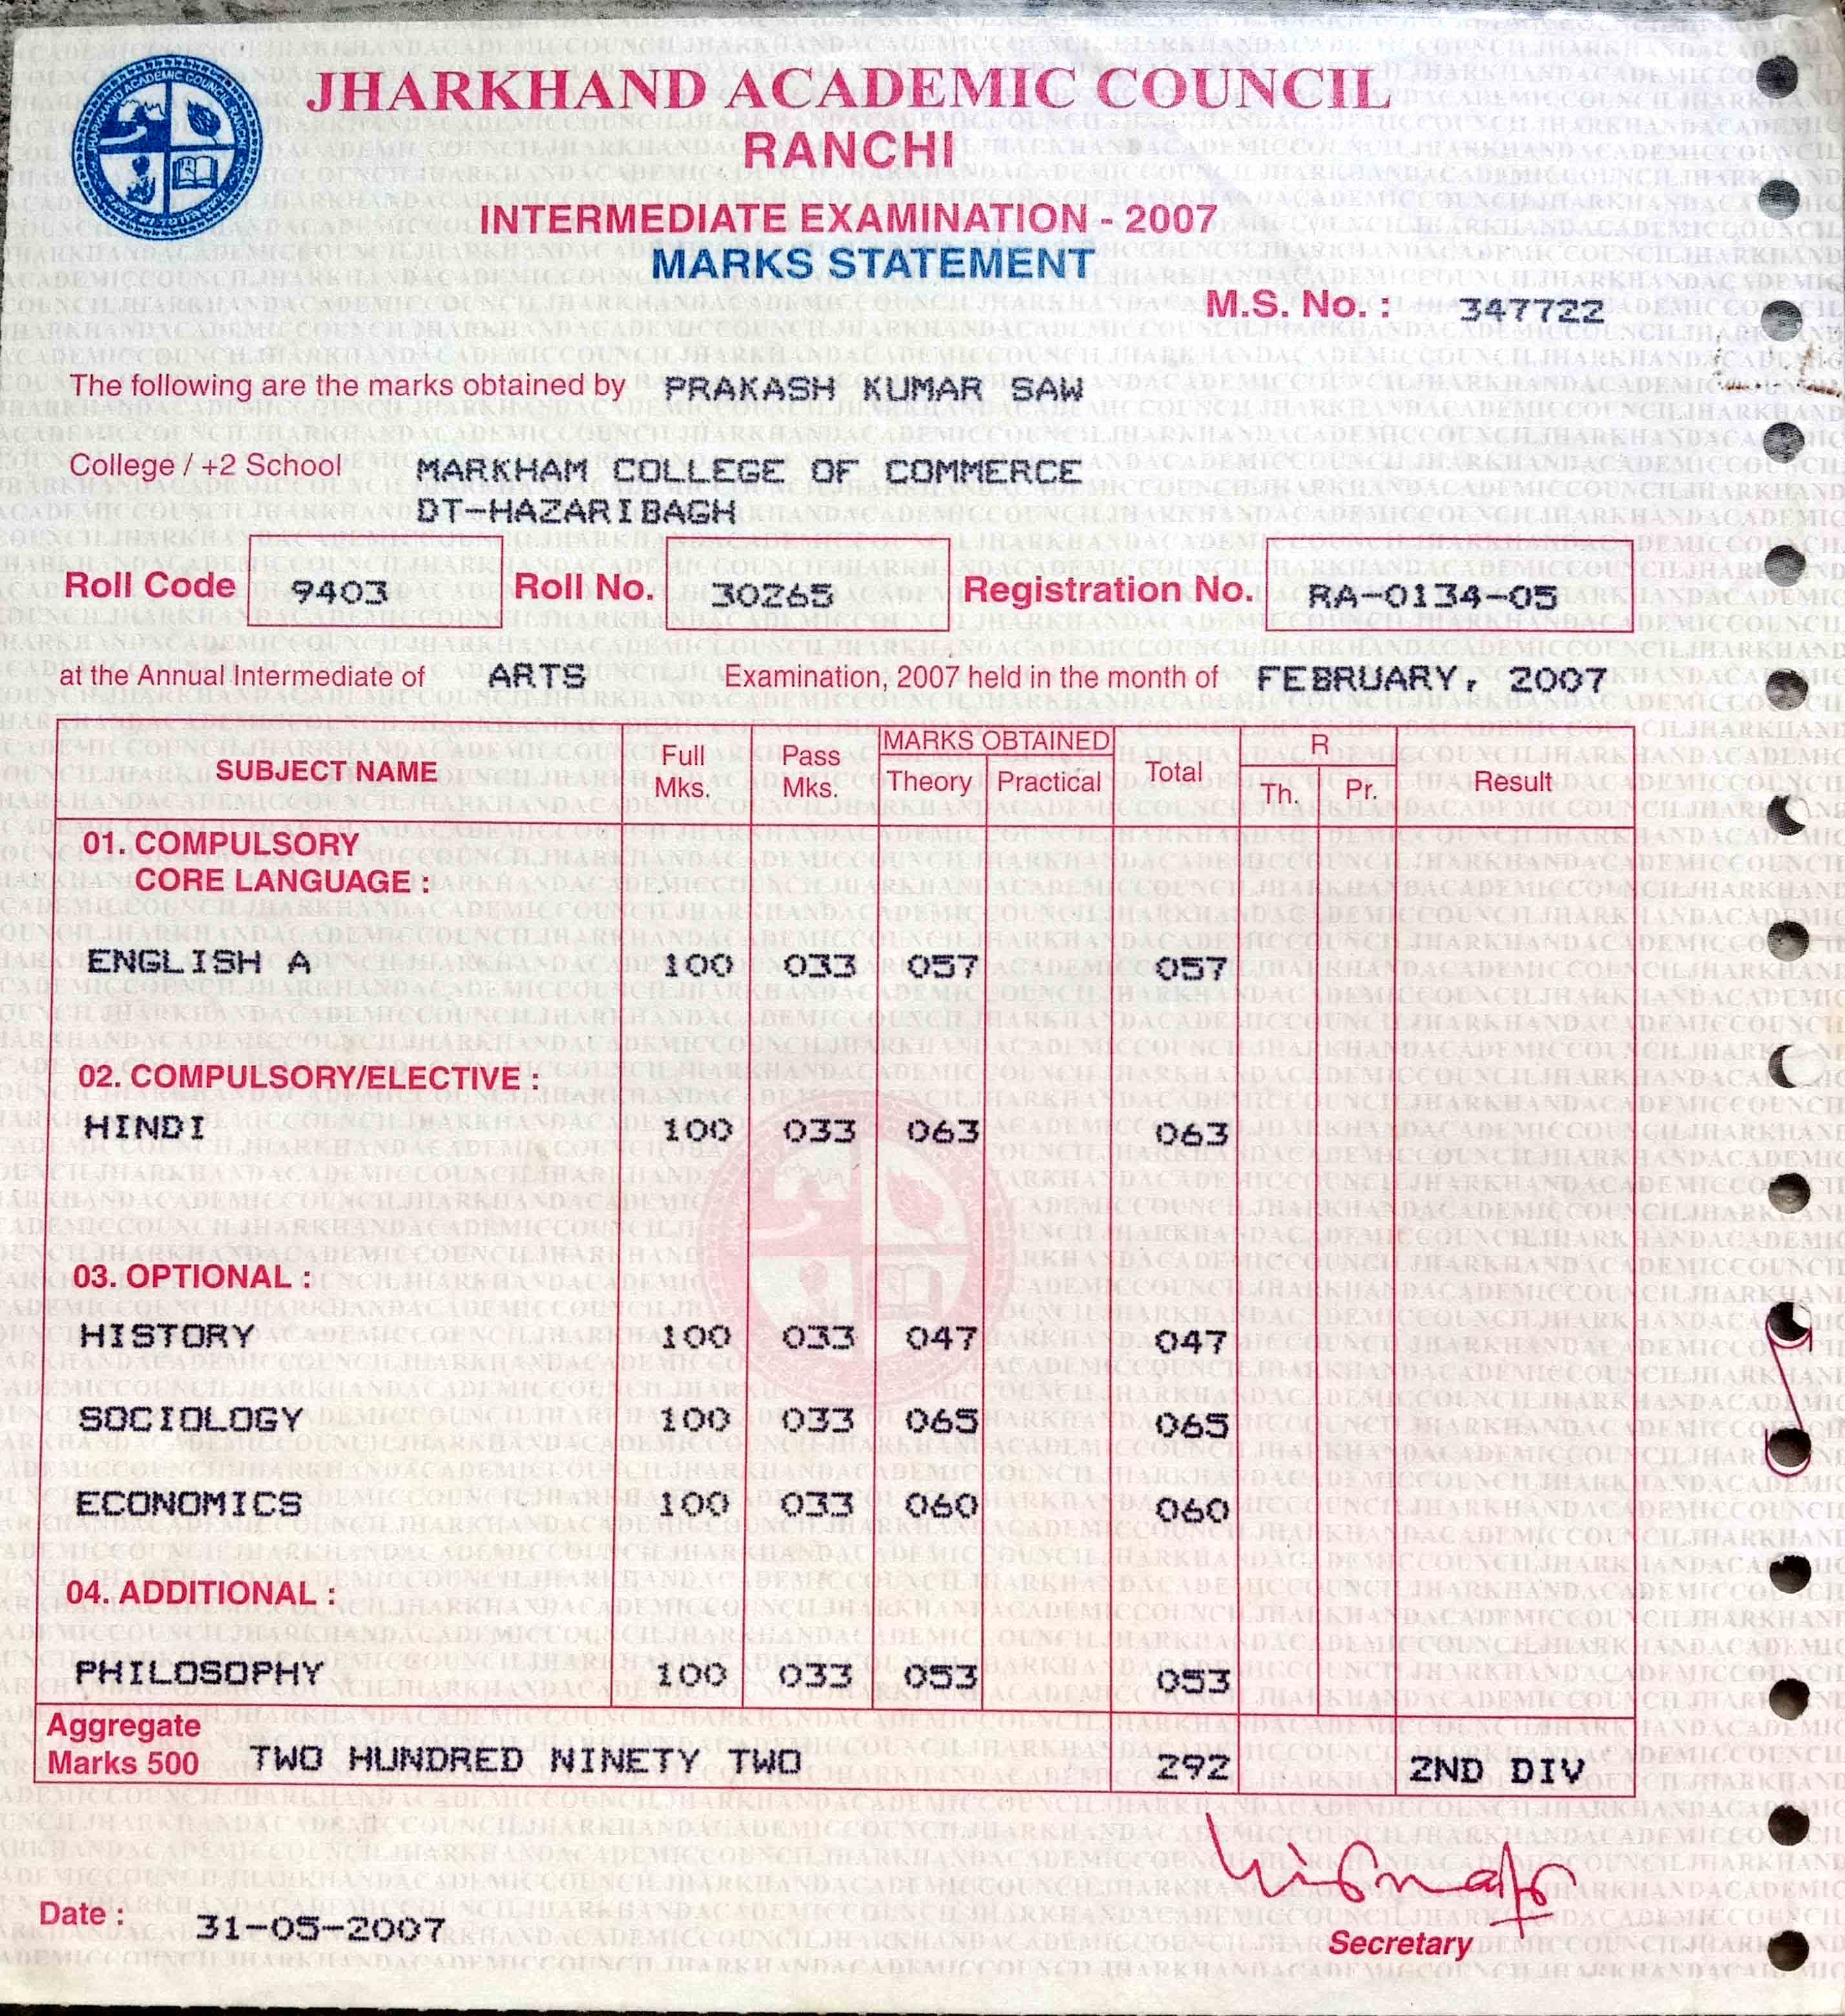 JHARKHAND ACADEMIC COUNCIL
RANCHI
INTERMEDIATE EXAMINATION - 2007
MARKS STATEMENT
M.S. No. : 347722
The following are the marks obtained by PRAKASH KUMAR SAW
College / +2 School MARKHAM COLLEGE OF COMMERCE
DT-HAZARIBAGH
Roll Code 9403 Roll No. 30265 Registration No. RA-0134-05
at the Annual Intermediate of ARTS Examination, 2007 held in the month of FEBRUARY, 2007
SUBJECT NAME Full Mks. Pass Mks. MARKS OBTAINED Theory Practical Total R Th. Pr. Result
01. COMPULSORY
CORE LANGUAGE :
ENGLISH A 100 033 057 057
02. COMPULSORY/ELECTIVE :
HINDI 100 033 063 063
03. OPTIONAL :
HISTORY 100 033 047 047
SOCIOLOGY 100 033 065 065
ECONOMICS 100 033 060 060
04. ADDITIONAL :
PHILOSOPHY 100 033 053 053
Aggregate
Marks 500 TWO HUNDRED NINETY TWO 292 2ND DIV
Date : 31-05-2007
Secretary